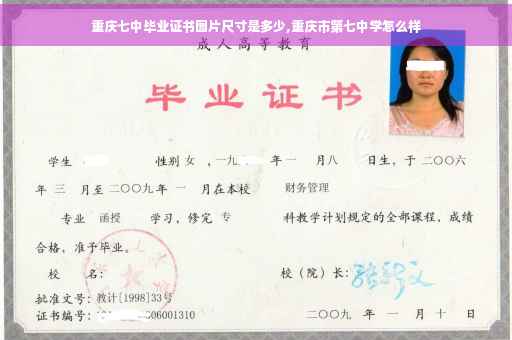 重庆七中毕业证书图片尺寸是多少,重庆市第七中学怎么样
成人高等教育
毕业证书
学生 性别 女 ,一九 年 一 月 八 日生,于 二〇〇六
年 三 月至 二〇〇九 年 一 月在本校 财务管理
专业 函授 学习,修完 专 科教学计划规定的全部课程,成绩
合格,准予毕业。
校 名: 校(院)长:
批准文号:教计[1998]33号
证书编号: 06001310 二〇〇九 年 一 月 十 日